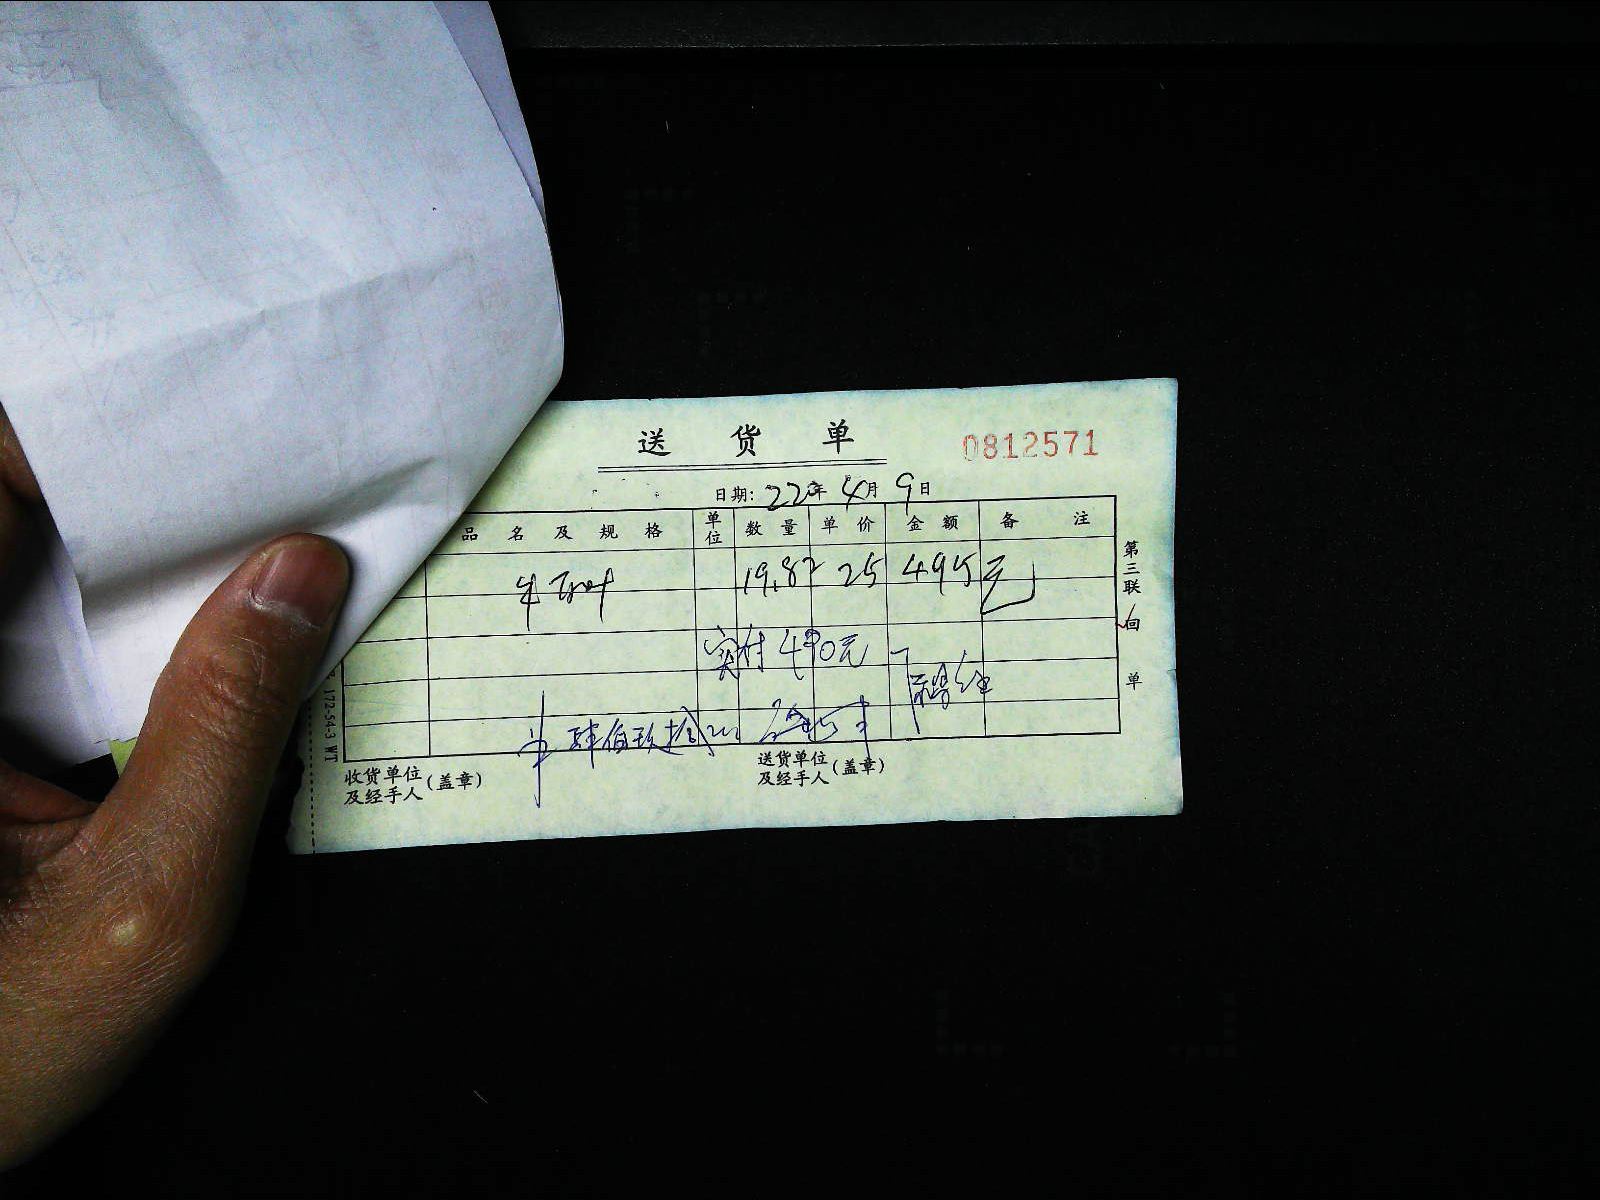 送货单
0812571
日期: 22年4月9日
品名及规格 单位 数量 单价 金额 备注
19.8 25 495元
实付490元
肆佰玖拾
收货单位及经手人(盖章)
送货单位及经手人(盖章)
第三联 回单
172-54-3 WT